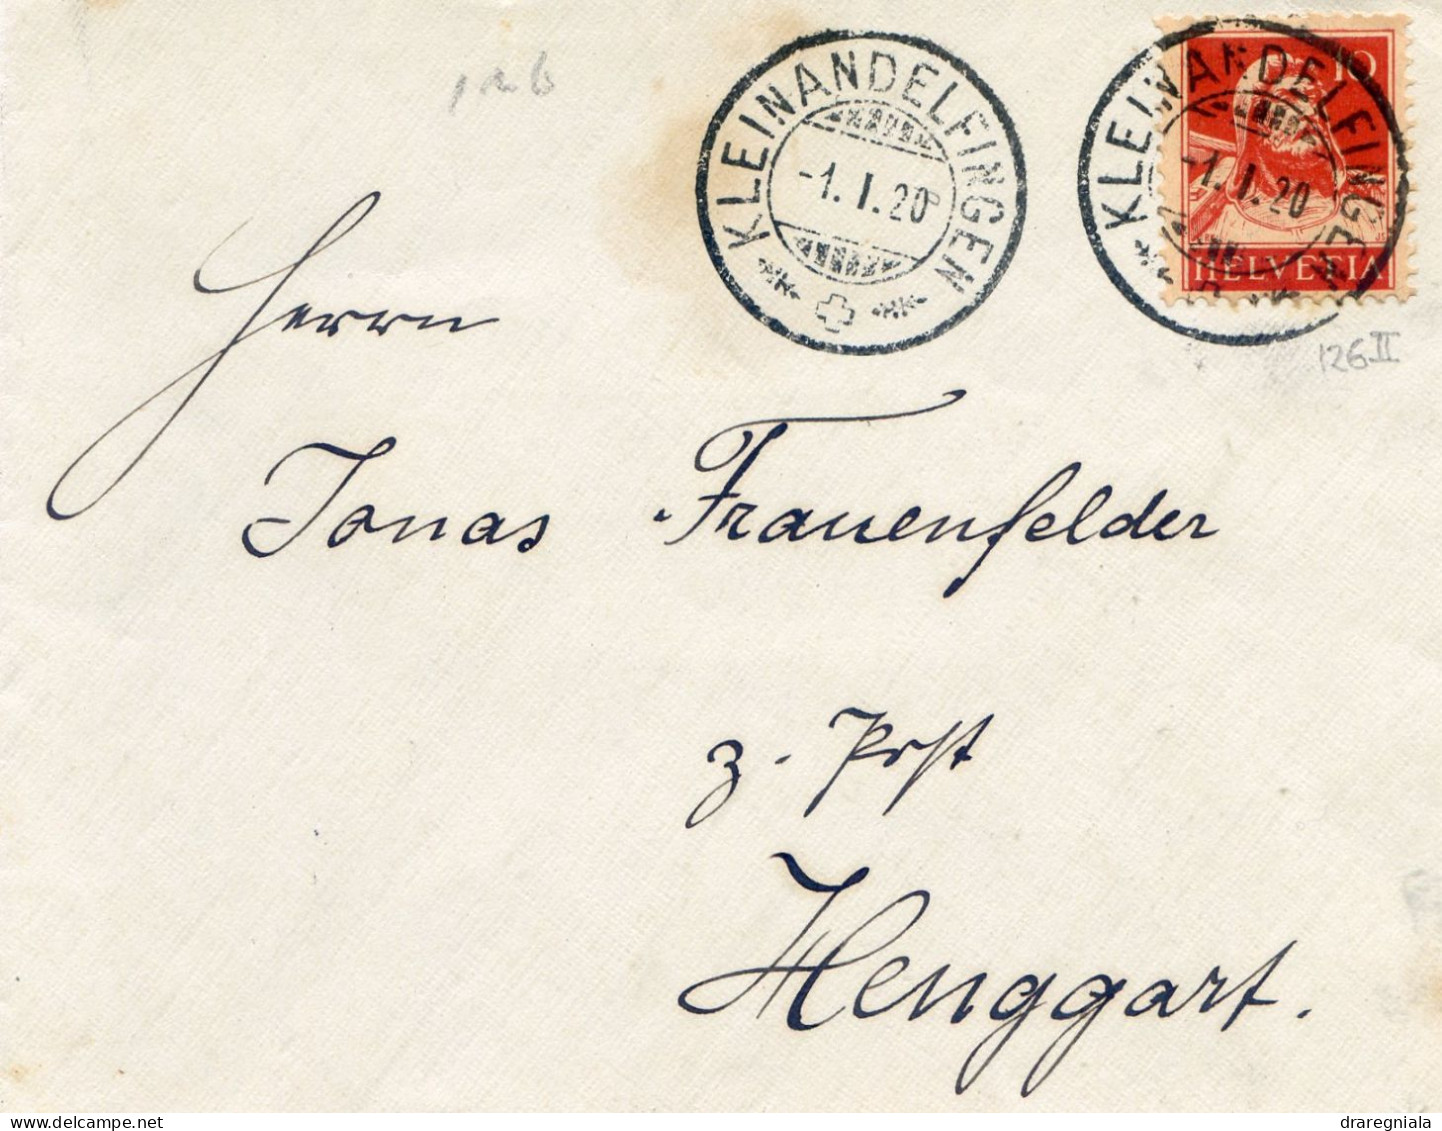 KLEINANDELFINGEN
-1.I.20
KLEINANDELFINGEN
-1.I.20
10
HELVETIA
126 II
Herrn
Jonas Frauenfelder
z. Post
Henggart.
draregniala